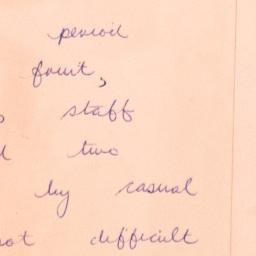 period
fruit,
staff
two
by casual
not difficult